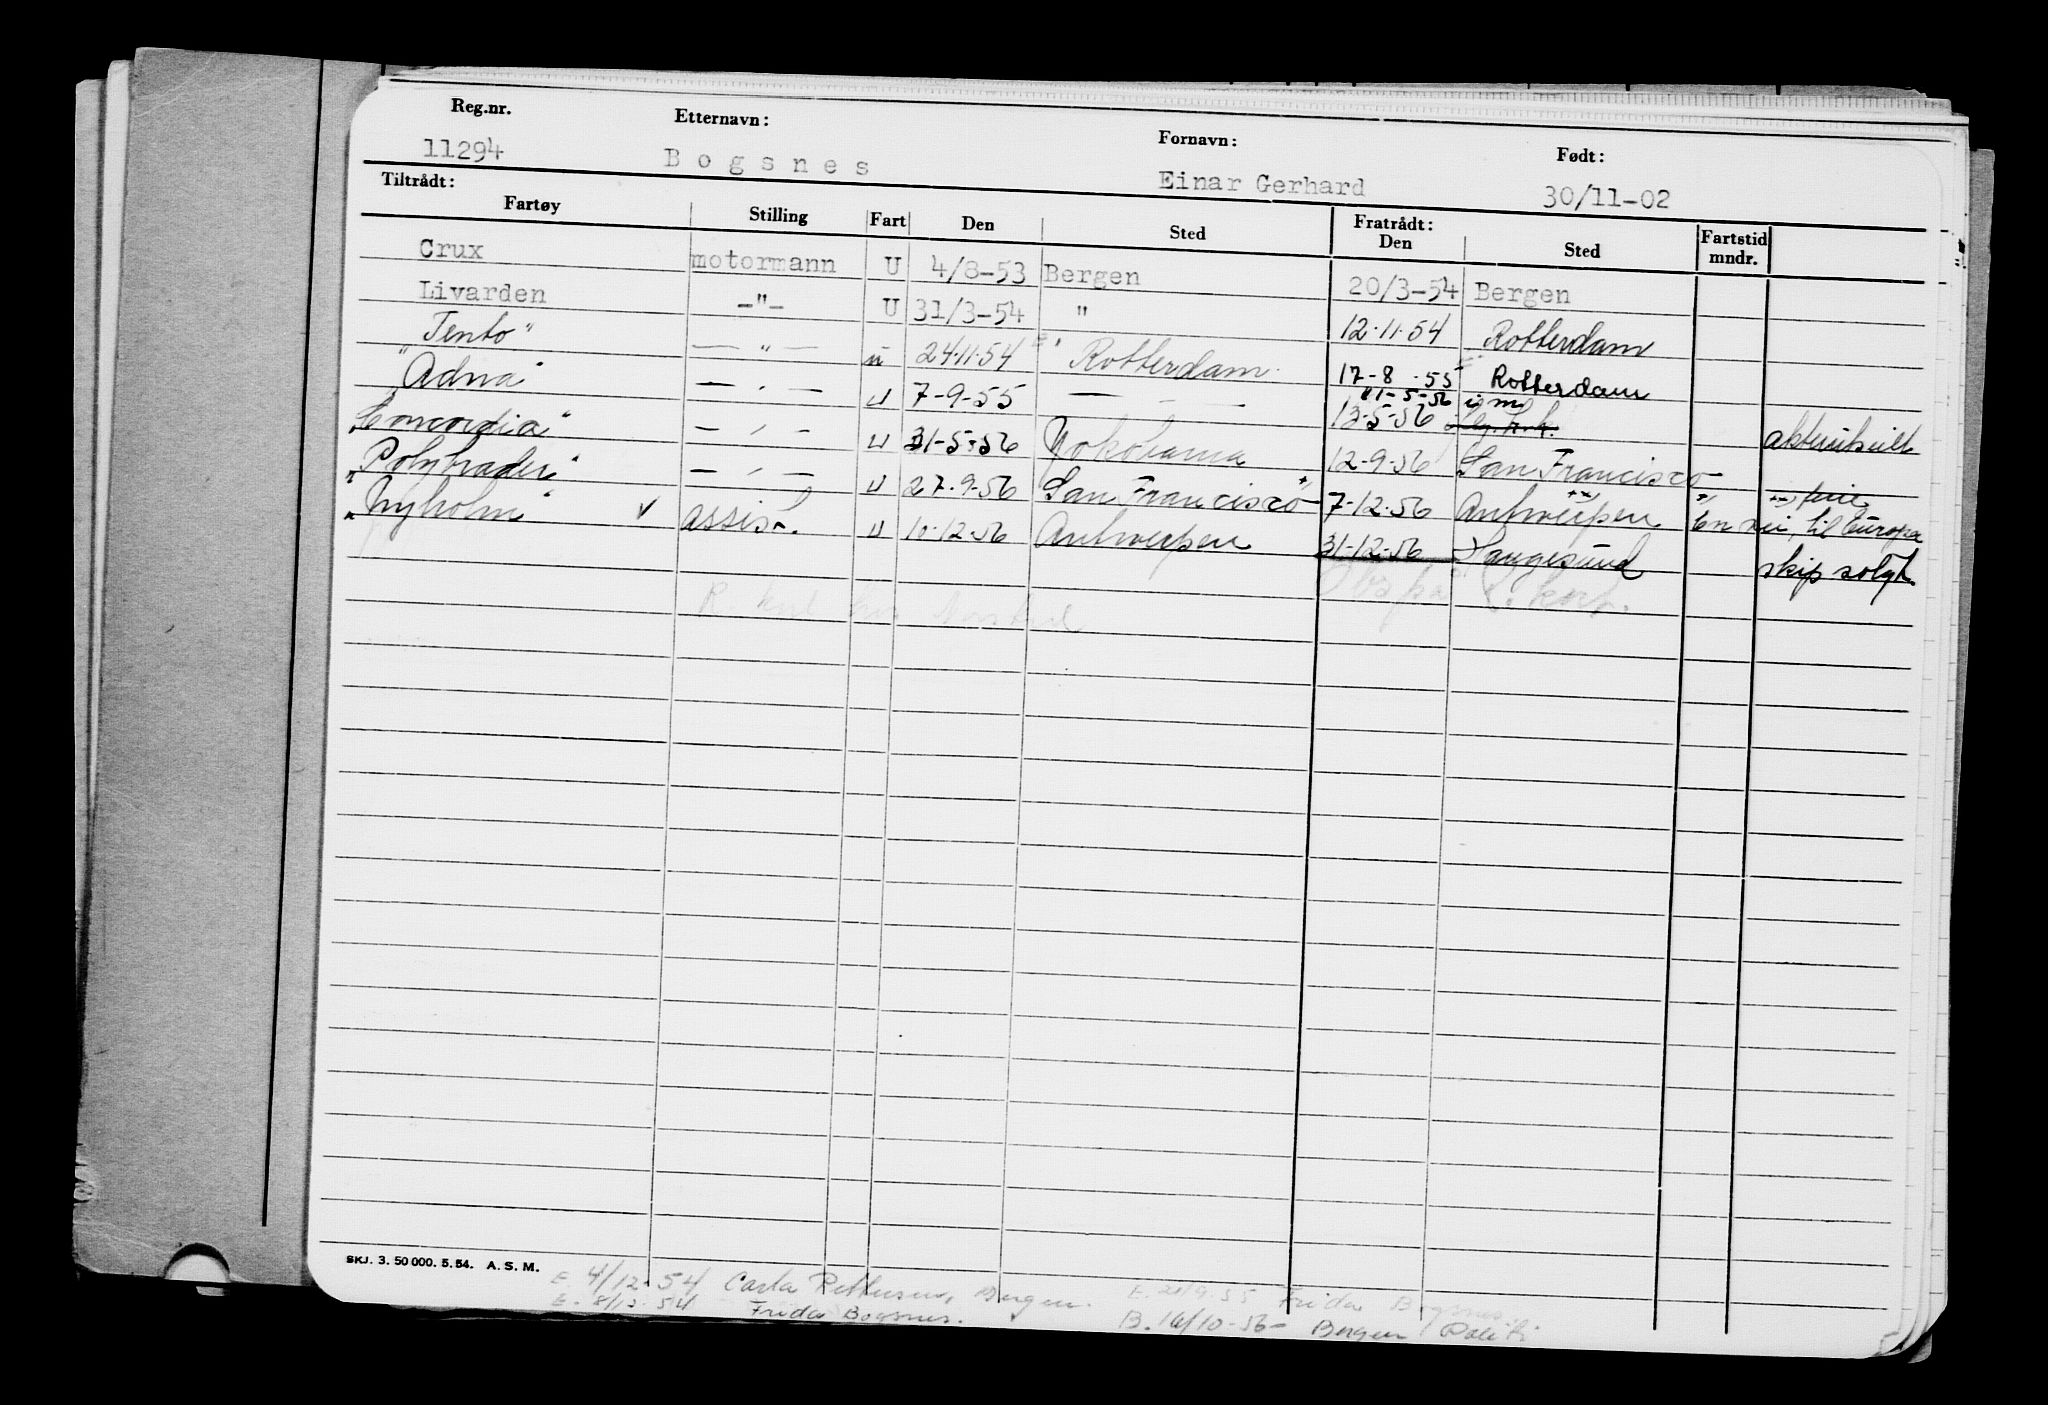 Reg.nr. Etternavn: Fornavn: Født:
11294 Bogsnes Einar Gerhard 30/11-02
Tiltrådt: Fratrådt:
Fartøy Stilling Fart Den Sted Den Sted Fartstid mndr.
Crux motormann U 4/8-53 Bergen 20/3-54 Bergen
Livarden -"- U 31/3-54 " 12.11.54 Rotterdam
"Tento" — " — u 24.11.54 Rotterdam. 17-8-55 Rotterdam
"Adna" — " — u 7-9-55 — 13-5-56
"Concordia" — " — u 31-5-56 Yokohama 12-9-56 San Francisco
"Polytrader" — " — u 27.9.56 San Francisco 7-12-56 Antwerpen En rei, til Europa
"Nyholm" ✓ assist. u 10-12-56 Antwerpen 31-12-56 Haugesund skip solgt.
SKJ. 3. 50 000. 5. 54. A. S. M.
E. 4/12-54 Carla Pettersen, Bergen. E. 21/9-55 Frida Bogsnes
E. 8/12-54 Frida Bogsnes. B. 16/10-56 - Bergen Politi